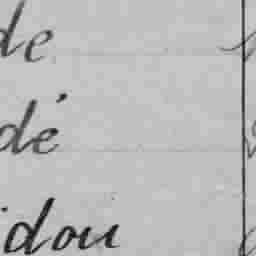 de
dé
idou